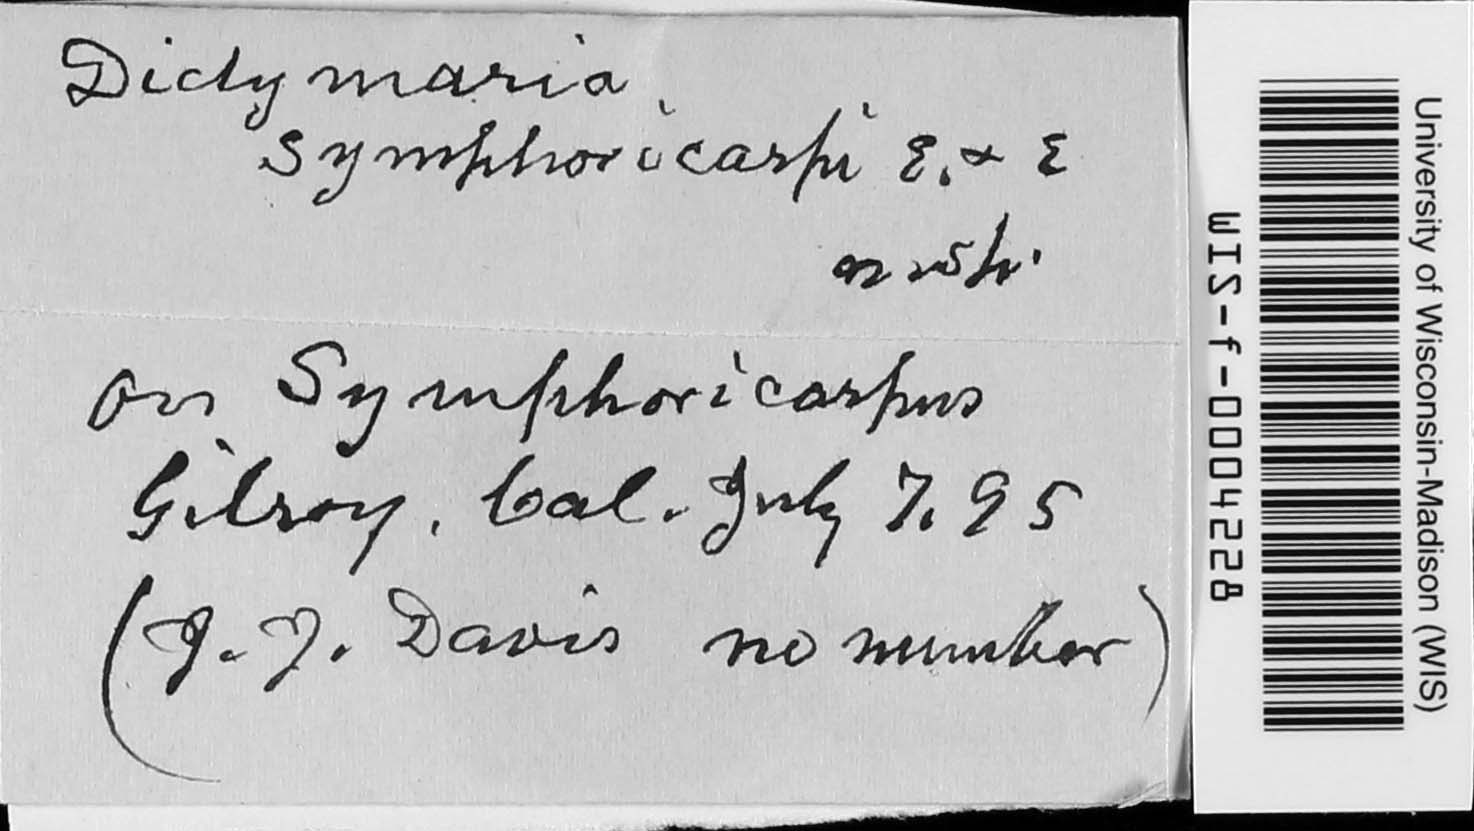 Didymaria
symphoricarpi E. & E
n. sp.
on Symphoricarpus
Gilroy, Cal. July 7. 95
(J. J. Davis no number)
University of Wisconsin-Madison (WIS)
WIS-f-0004228